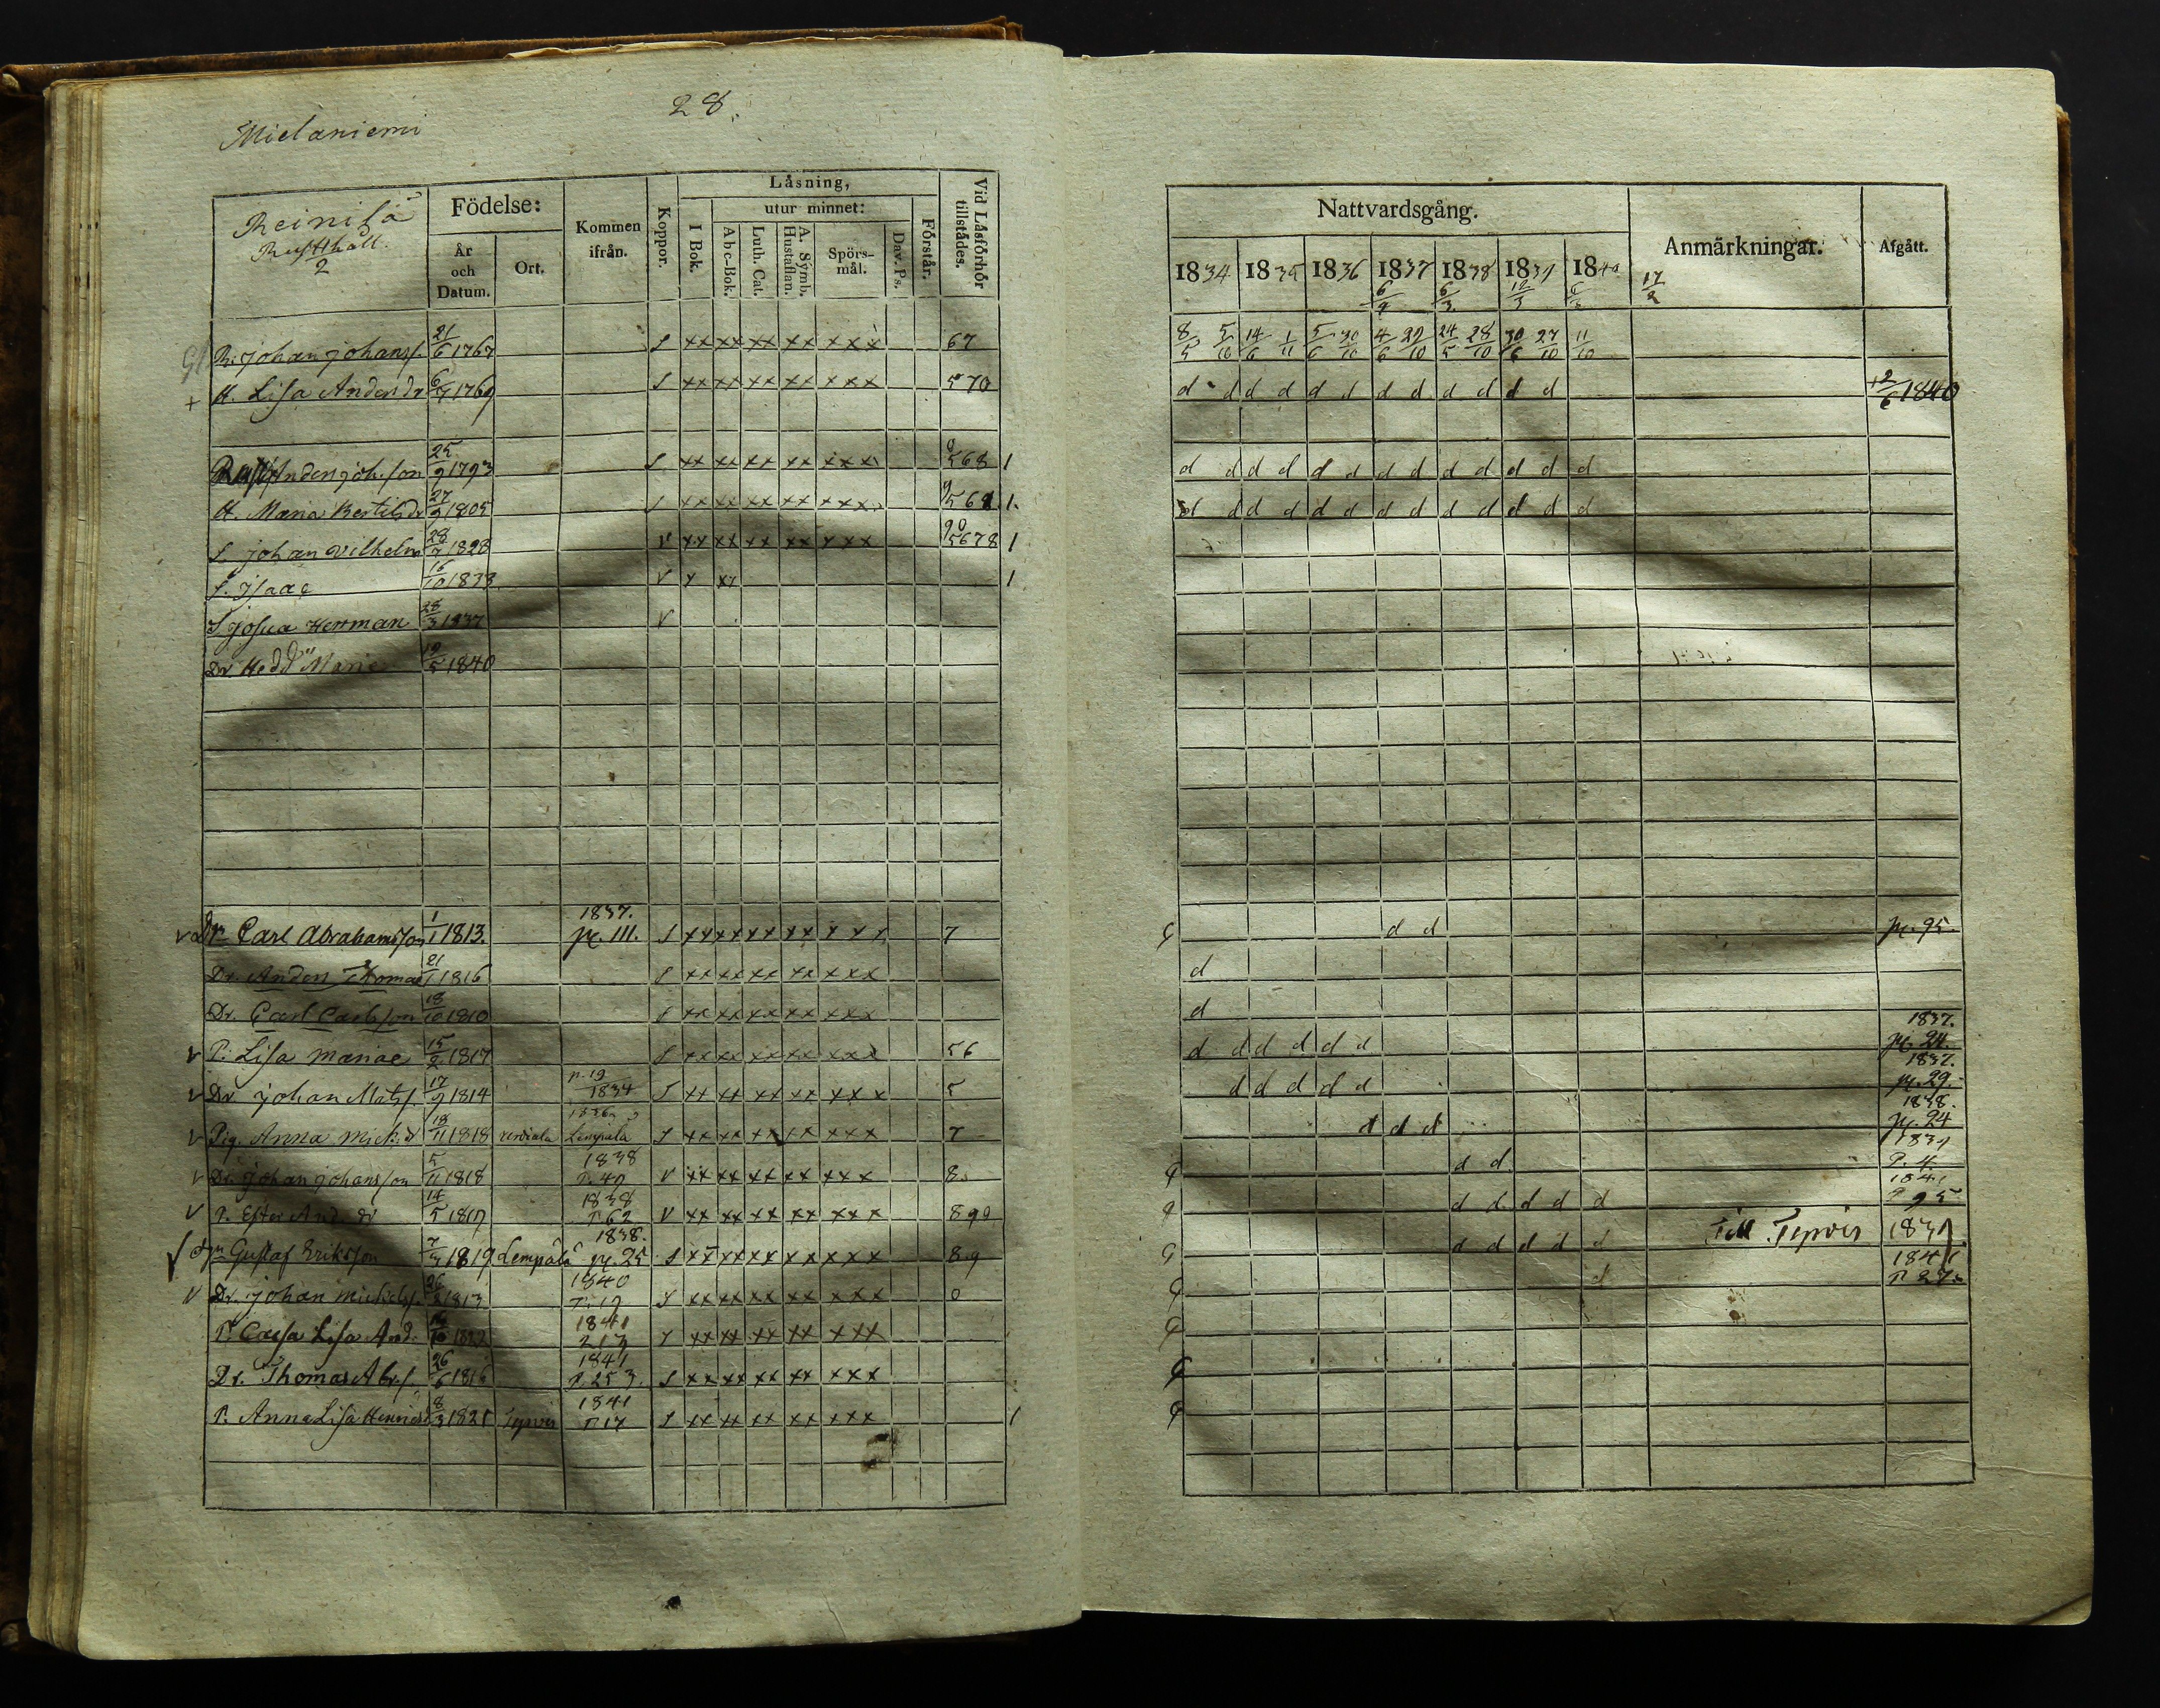 28.
Mielaniemi
Reinilä
Rusthåll.
2
Födelse:
År och Datum.
Ort.
Kommen ifrån.
Koppor.
Låsning,
I Bok.
utur minnet:
A b c-Bok.
Luth. Cat.
A. Symb. Hustaflan.
Spörs-mål.
Dav. Ps.
Förstår.
Vid Låsförhör tillstådes.
Nattvardsgång.
1834 1835 1836 1837 1838 1839 1840
6/9 6/3 12/3 17/2
Anmärkningar.
Afgått.
R. Johan Johanss. 21/6 1767 S xx xx xx xx xxx 67 8/5 5/10 14/6 1/11 5/6 30/10 4/6 29/10 24/5 28/10 30/6 27/10 11/10
+ H. Lisa Andersdr 6/7 1769 S xx xx xx xx xxx 570 d d d d d d d d d d d d +2/6 1840
Anders Joh.son 25/9 1793 S xx xx xx xx xxx 568 1 d d d d d d d d d d d d d
H. Maria Bertilsdr 27/9 1805 S xx xx xx xx xxx 568 1. d d d d d d d d d d d d d
S Johan Vilhelm 28/7 1828 V xx xx xx xx xxx 90 5678 1
S. Isaac 16/10 1833 V x xx 1
S Josua Herrman 28/3 1837 V
Dr Hedd Maria 19/5 1840
v Dr Carl Abrahamsson 1/1 1813. 1837. pg. 111. S xx xx xx xx xxx 7 d d pg. 95.
Dr. Anders Thomas 21/1 1816 S xx xx xx xx xxx d
Dr. Carl Carlsson 18/10 1810 S xx xx xx xx xxx d
v P. Lisa Mariae 15/2 1817 S xx xx xx xx xxx 56 d d d d d d 1837. pg. 24.
v Dr Johan Mats. 17/9 1814 p. 19 1834 S xx xx xx xx xxx 5 d d d d d 1837. pg. 29.
v Pig. Anna Mich.d 18/11 1818 1836 Lempiala S xx xx xx xx xxx 7 d d d 1838. pg. 24
v Dr. Johan Johansson 5/11 1818 1838 P. 40 V xx xx xx xx xxx 8. d d 1839 P. 4
v P. Ester And. dr 14/5 1817 1838 P 62 V xx xx xx xx xxx 890 d d d d d 1841 P 95
v Dr Gustaf Eriksson 7/3 1819 Lempälä 1838. pg. 25 S xx xx xx xx xxx 89 d d d d d Till Tyrvis 1839
v Dr. Johan Michels. 26/2 1813 1840 P. 19 S xx xx xx xx xxx 0 d 1841 P 27.
P. Caisa Lisa And. 16/10 1822 1841 213 S xx xx xx xx xxx
Dr. Thomas Abr.s. 26/6 1816 1841 P. 253. S xx xx xx xx xxx
P. Anna Lisa Henrics 8/3 1821 Tyrvis 1841 P 17 S xx xx xx xx xxx 1